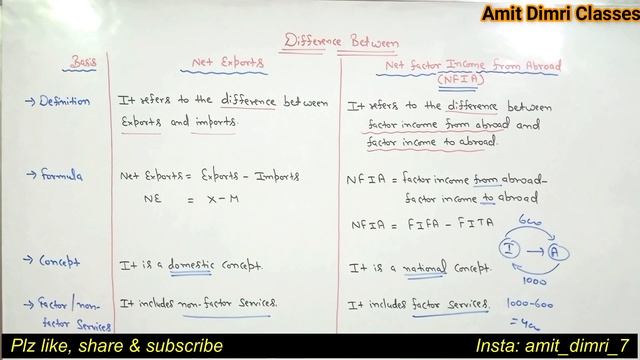 Amit Dimri Classes
Difference Between
Basis
Net Exports
Net factor Income from Abroad
(NFIA)
→ Definition
It refers to the difference between
Exports and imports.
It refers to the difference between
factor income from abroad and
factor income to abroad.
→ Formula
Net Exports = Exports - Imports
NE = X - M
NFIA = factor income from abroad -
factor income to abroad
NFIA = FIFA - FITA
600
I → A
1000
→ Concept
It is a domestic concept.
It is a national concept.
→ Factor/non-
factor Services
It includes non-factor services.
It includes factor services.
1000-600
= 400
Plz like, share & subscribe
Insta: amit_dimri_7